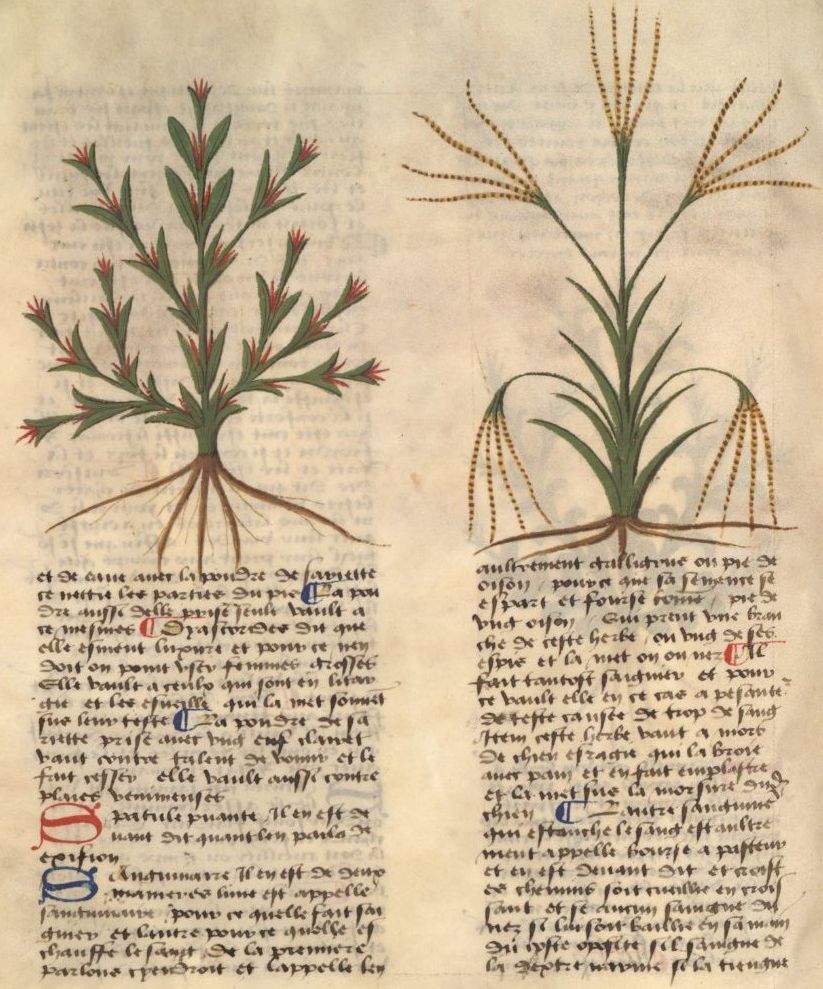 et de eaue avec la poudre de sariette
ce nettie les parties du pie La pou
dre aussi delle prise seule vault a
ce mesmes Dyascorides dit que
elle esment luxure et pour ce nen
doit on point user femmes grosses
Elle vault a ceulx qui sont en litar
gie et les esueille qui la met
sus leur teste La poudre de sa
riette prise avec ung euf
vault contre talent de vomir et le
fait cesser elle vault aussi contre
plaies venimeuses
Spatule puante Il en est de
vant dit quant len parla de
exifion
Sanguinaire Il en est de deux
manieres lune est appellee
sanguinaire pour ce quelle fait sai
gnier et lautre pour ce quelle es
chauffe le sang De la premiere
parlons cyendroit et lappelle len
aultrement galligrus ou pie de
oison pour ce que sa semence se
espart et fourse come pie de
ung oison Qui prent une bran
che de ceste herbe ou ung de ses
espis et la met on ou nez Il
fait tantost saignier et pour
ce vault elle en ce cas a pesante
de teste causee de trop de sang
Item ceste herbe vaut a mors
de chien esragie qui la broie
avec pain et en fait emplastre
et la met sus la morsure du
chien Lautre sanguine
qui estanche le sang est aultre
ment appelle bourse a pasteur
et en est devant dit et croist
es chemins soit cueillie en crois
sant et se aucun saingne du
nez si lui soit baillie en sa main
du coste oposite sil saingne de
la dextre narine si la tiengne